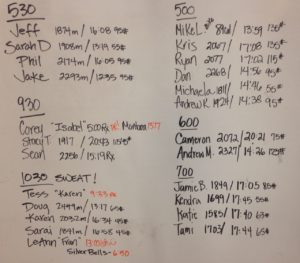 530
Jeff 1874m/16:08 95#
Sarah D 1908m/13:14 55#
Phil 2174m/16:05 95#
Jake 2293m/12:35 95#
930
Corey "Isabel" 5:00Rx Montana 1577
Stacy T. 1917 / 20:43
Sean 2250/15:19Rx
1030 SWEAT!
Tess "Karen" 9:33
Doug 2499m/13:17 65#
Karen 2032m/16:34 45#
Sarai 1891m/16:58 45#
LeAnn "Fran"
Silver Bells - 6:50
500
Mike L. / 13:59 135#
Kris 2067/17:08 135#
Ryan 2077 17:02 115#
Dan 2268/14:56 95#
Michaela 1811/14:46 55
Andrew K. 1924/14:38 95#
600
Cameron 2072/20:21 75#
Andrew M. 2327/14:26
700
Jamie B. 1849/17:05 85#
Kendra 1699/17:45 55#
Katie 1585/17:40 63#
Tami 1703/17:44 65#